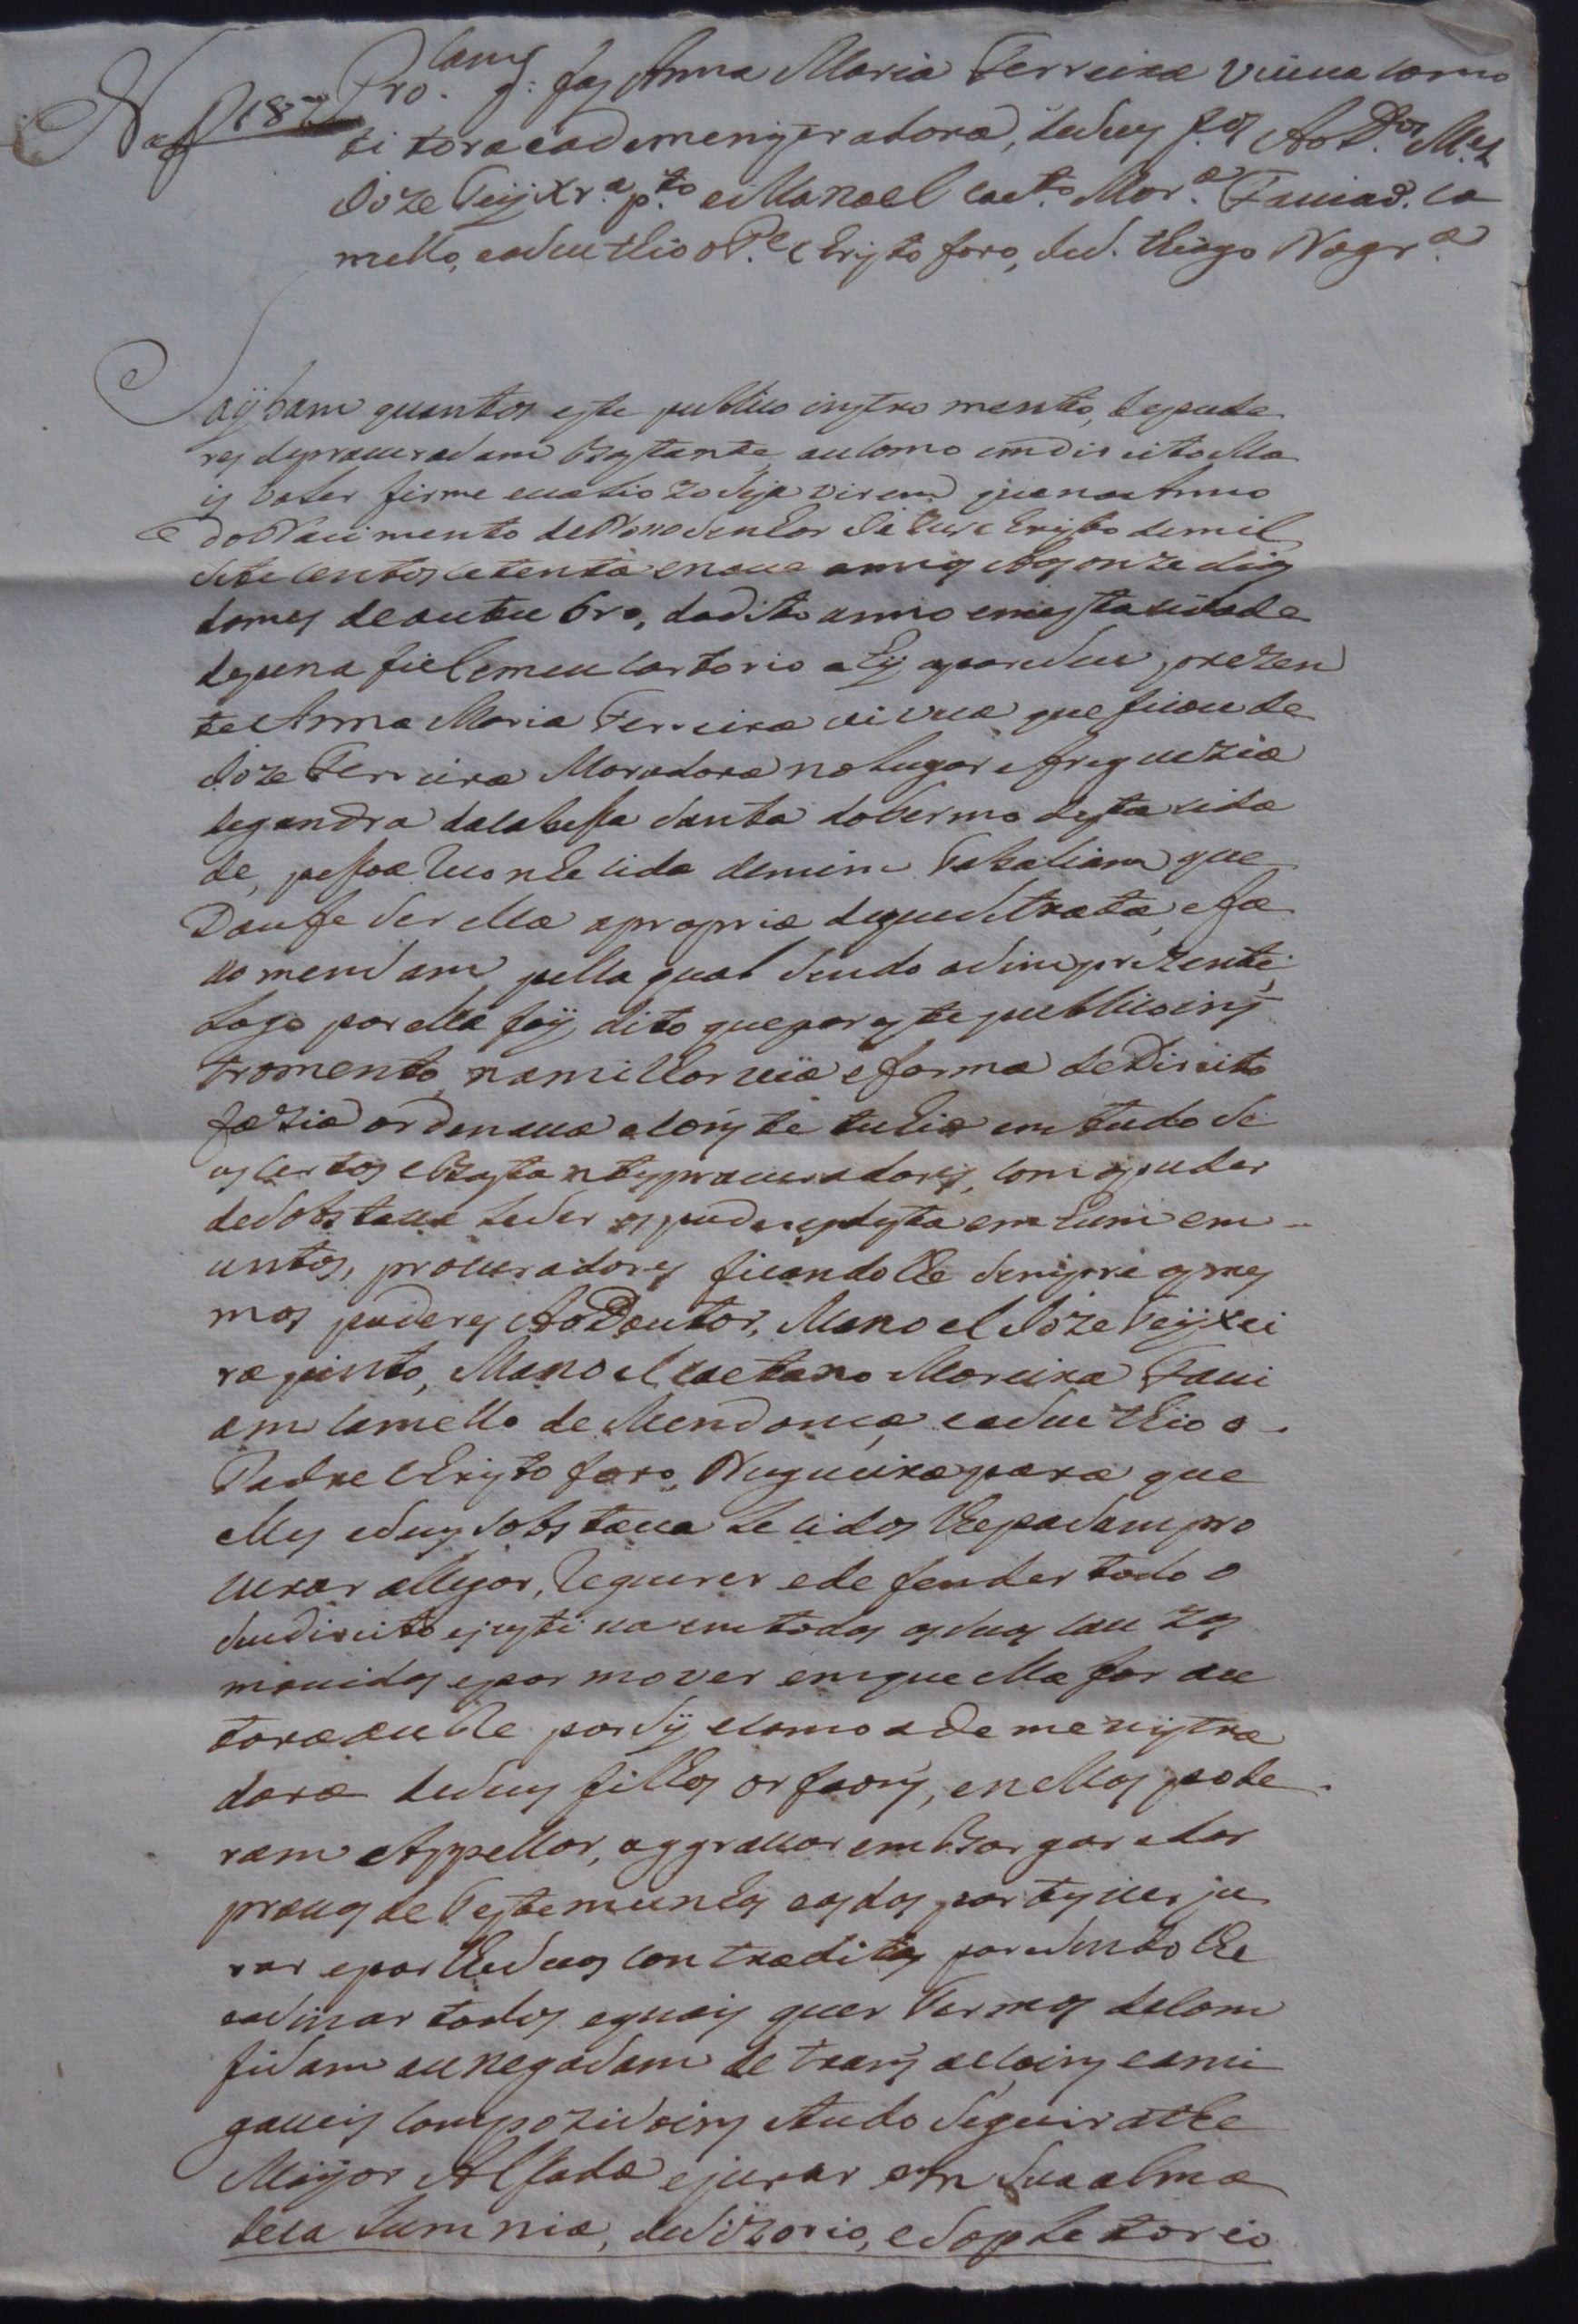 Nº 187
Pro.cam q. faz Anna Maria Ferreira viuua como
titora e ademenistradora, de seus f.os Ao D.or M.el
Joze Teyxr.a p.to e Manoel Caet.o Mor.a Fauiaõ. Ca
mello, e a seu thio o P.e Christoforo, de S. Thiago Nogr.a
Saÿbam quantos este publico instromento, de pude
res de procurasam bastante, ou como em direito ma
is valer firme e ualiozo seja virem que no Anno
do Nacimento de Nosso Senhor Jezus Christo de mil
sete centos setenta e noue annos Aos onze dias
do mes de outubro, do dito anno em esta cidade
de pena fiel em meu cartorio ahy apareseu, prezen
te Anna Maria Ferreira viuua que ficou de
Joze Ferreira Moradora no lugar e freguezia
de gandra da cabessa santa do termo desta cida
de, pessoa Reconhecida de mim Tabaliam que
Dou fe ser ella a propria de que se trata, e fa
so mensam pella qual sendo asim prezente
Logo por ella foÿ, dito que por este publico ins
tromento, na milhor uia e forma de Direito
fazia ordenaua e constetuhia em tudo se
us certos e bastantes procuradores, com o puder
de sobstaueleser os puderes desta em hum e m
untos, procuradores ficando lhe sempre os mes
mos puderes Ao Doutor, Manoel Joze Teÿxei
ra pinto, Manoel caetano Moreira Faui
am Camello de Mendonca, e a seu thio o
Padre Christoforo, Nugueira para que
elles e seus sobstaua lecidos lhe posam pro
curar allegar, Requerer e defender todo o
seu direito e justica em todas as suas cau zas
mouidas e por mover em que ella for au
tora ou Re por sÿ e como ademenistra
dora de seus filhos orfaons, e nellas pode
ram Appellar, aggrauar embargar e dar
prouas de Testemunhas e as das partes uer ju
rar e por lhe suas contraditas paresendo lhe
asinar todos e quais quer Termos de com
fisam ou negasam de transacoins e ami
gaueis compozisoins e tudo seguir athe
Mayor Alsada e jurar em sua alma
de calumnia, desizorio, e sopletorio